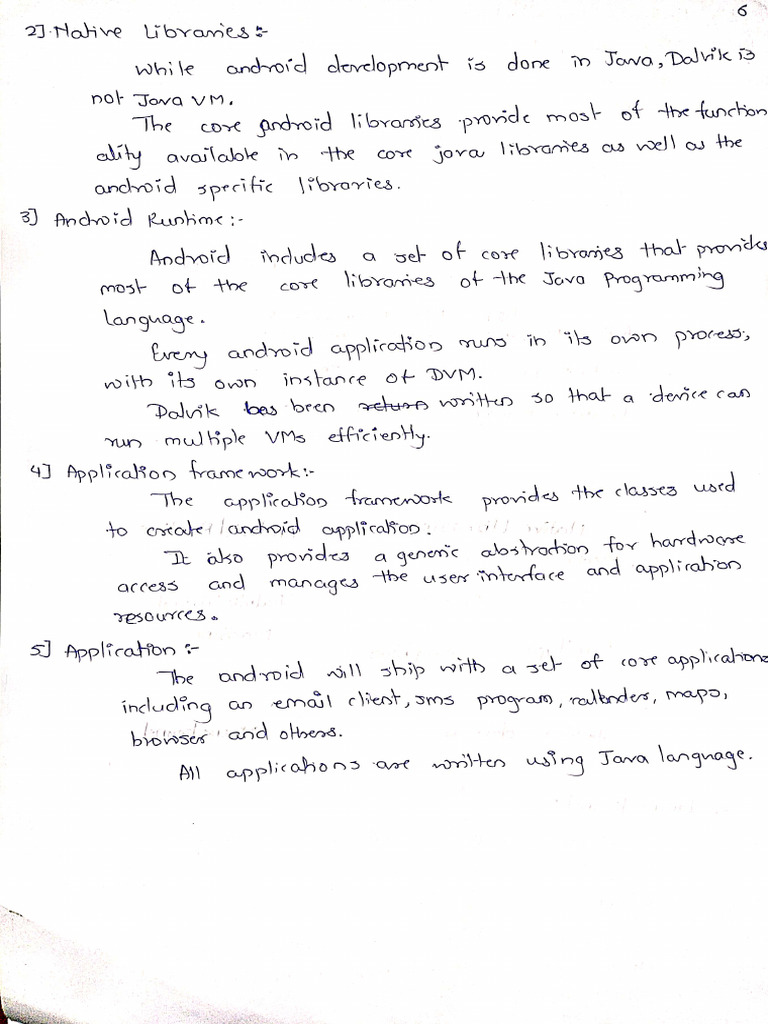 6
2] Native Libraries :-
While android development is done in Java, Dalvik is
not Java VM.
The core android libraries provide most of the function
ality available in the core java libraries as well as the
android specific libraries.
3] Android Runtime :-
Android includes a set of core libraries that provides
most of the core libraries of the Java Programming
language.
Every android application runs in its own process,
with its own instance of DVM.
Dalvik has been return written so that a device can
run multiple VMs efficiently.
4] Application framework :-
The application framework provides the classes used
to create android application.
It also provides a generic abstraction for hardware
access and manages the user interface and application
resources.
5] Application :-
The android will ship with a set of core applications
including an email client, sms program, maps,
browser and others.
All applications are written using Java language.